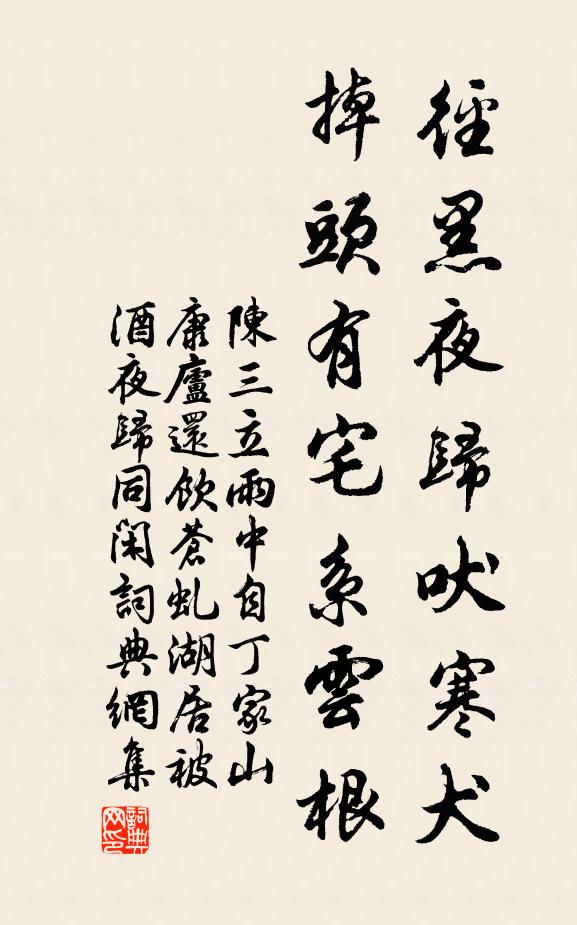 徑黑夜歸吠寒犬
掉頭有宅系雲根
陳三立雨中自丁家山
康廬還飲蒼虬湖居被
酒夜歸同閑詞典網集
詞典网印